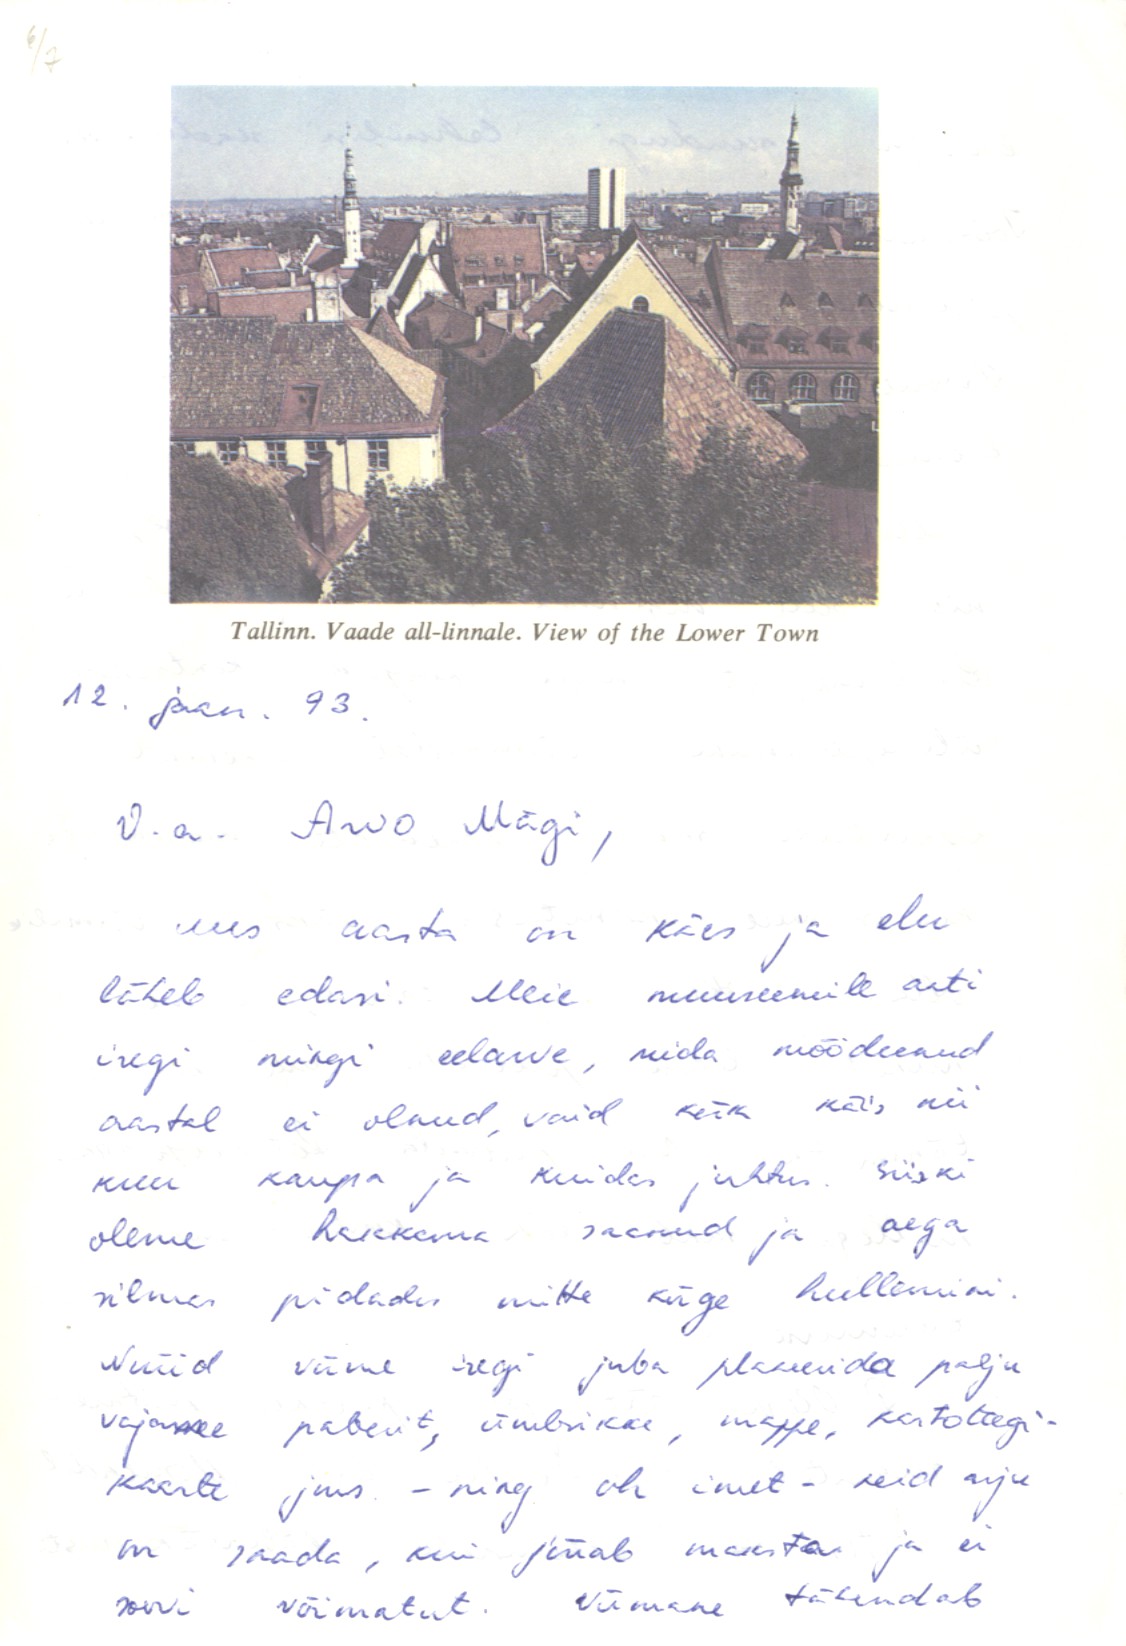 6/7
Tallinn. Vaade all-linnale. View of the Lower Town
12. jaan. 93.
V.a. Arvo Mägi,
uus aasta on käes ja elu
läheb edasi. Meie muuseumile anti
isegi mingi eelarve, mida möödunud
aastal ei olnud, vaid kõik käis nii
kuu kaupa ja kuidas juhtus. Siiski
oleme hakkama saanud ja aega
silmas pidades mitte kõige hullemini.
Nüüd võime isegi juba planeerida palju
vajame paberit, ümbrikke, mappe, kartoteegi-
kaarte jms. - ning oh imet - neid asju
on saada, kui jõuab maksta ja ei
soovi võimatut. Viimane tähendab